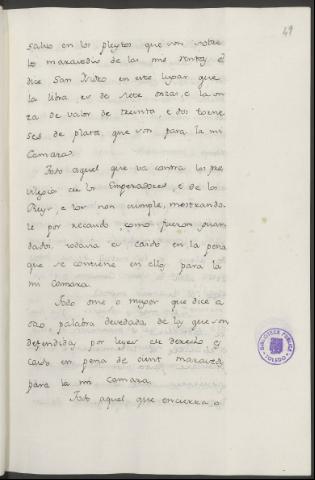 49
salvo en los pleytos que son sobre
los maravedis de las mis rentas, e
dice San Ysidro en este lugar que
la libra es de siete onzas, e la on
za de valor de treinta, e dos torne
ses de plata, que son para la mi
Camara.
Todo aquel que va contra los pre
vilegios de los Emperadores, e de los
Reys, e los non cumple, mostrando
le por recaudo, como fueron guar
dados, todavia es caido en la pena
que se contiene en ellos para la
mi camara.
Todo ome o muger que dice a
otro, palabra devedada, de las que son
defendidas por leyes de derecho es
caido en pena de cient maravedis
para la mi Camara.
Todo aquel que encierra o
BIBLIOTECA PUBLICA
TOLEDO